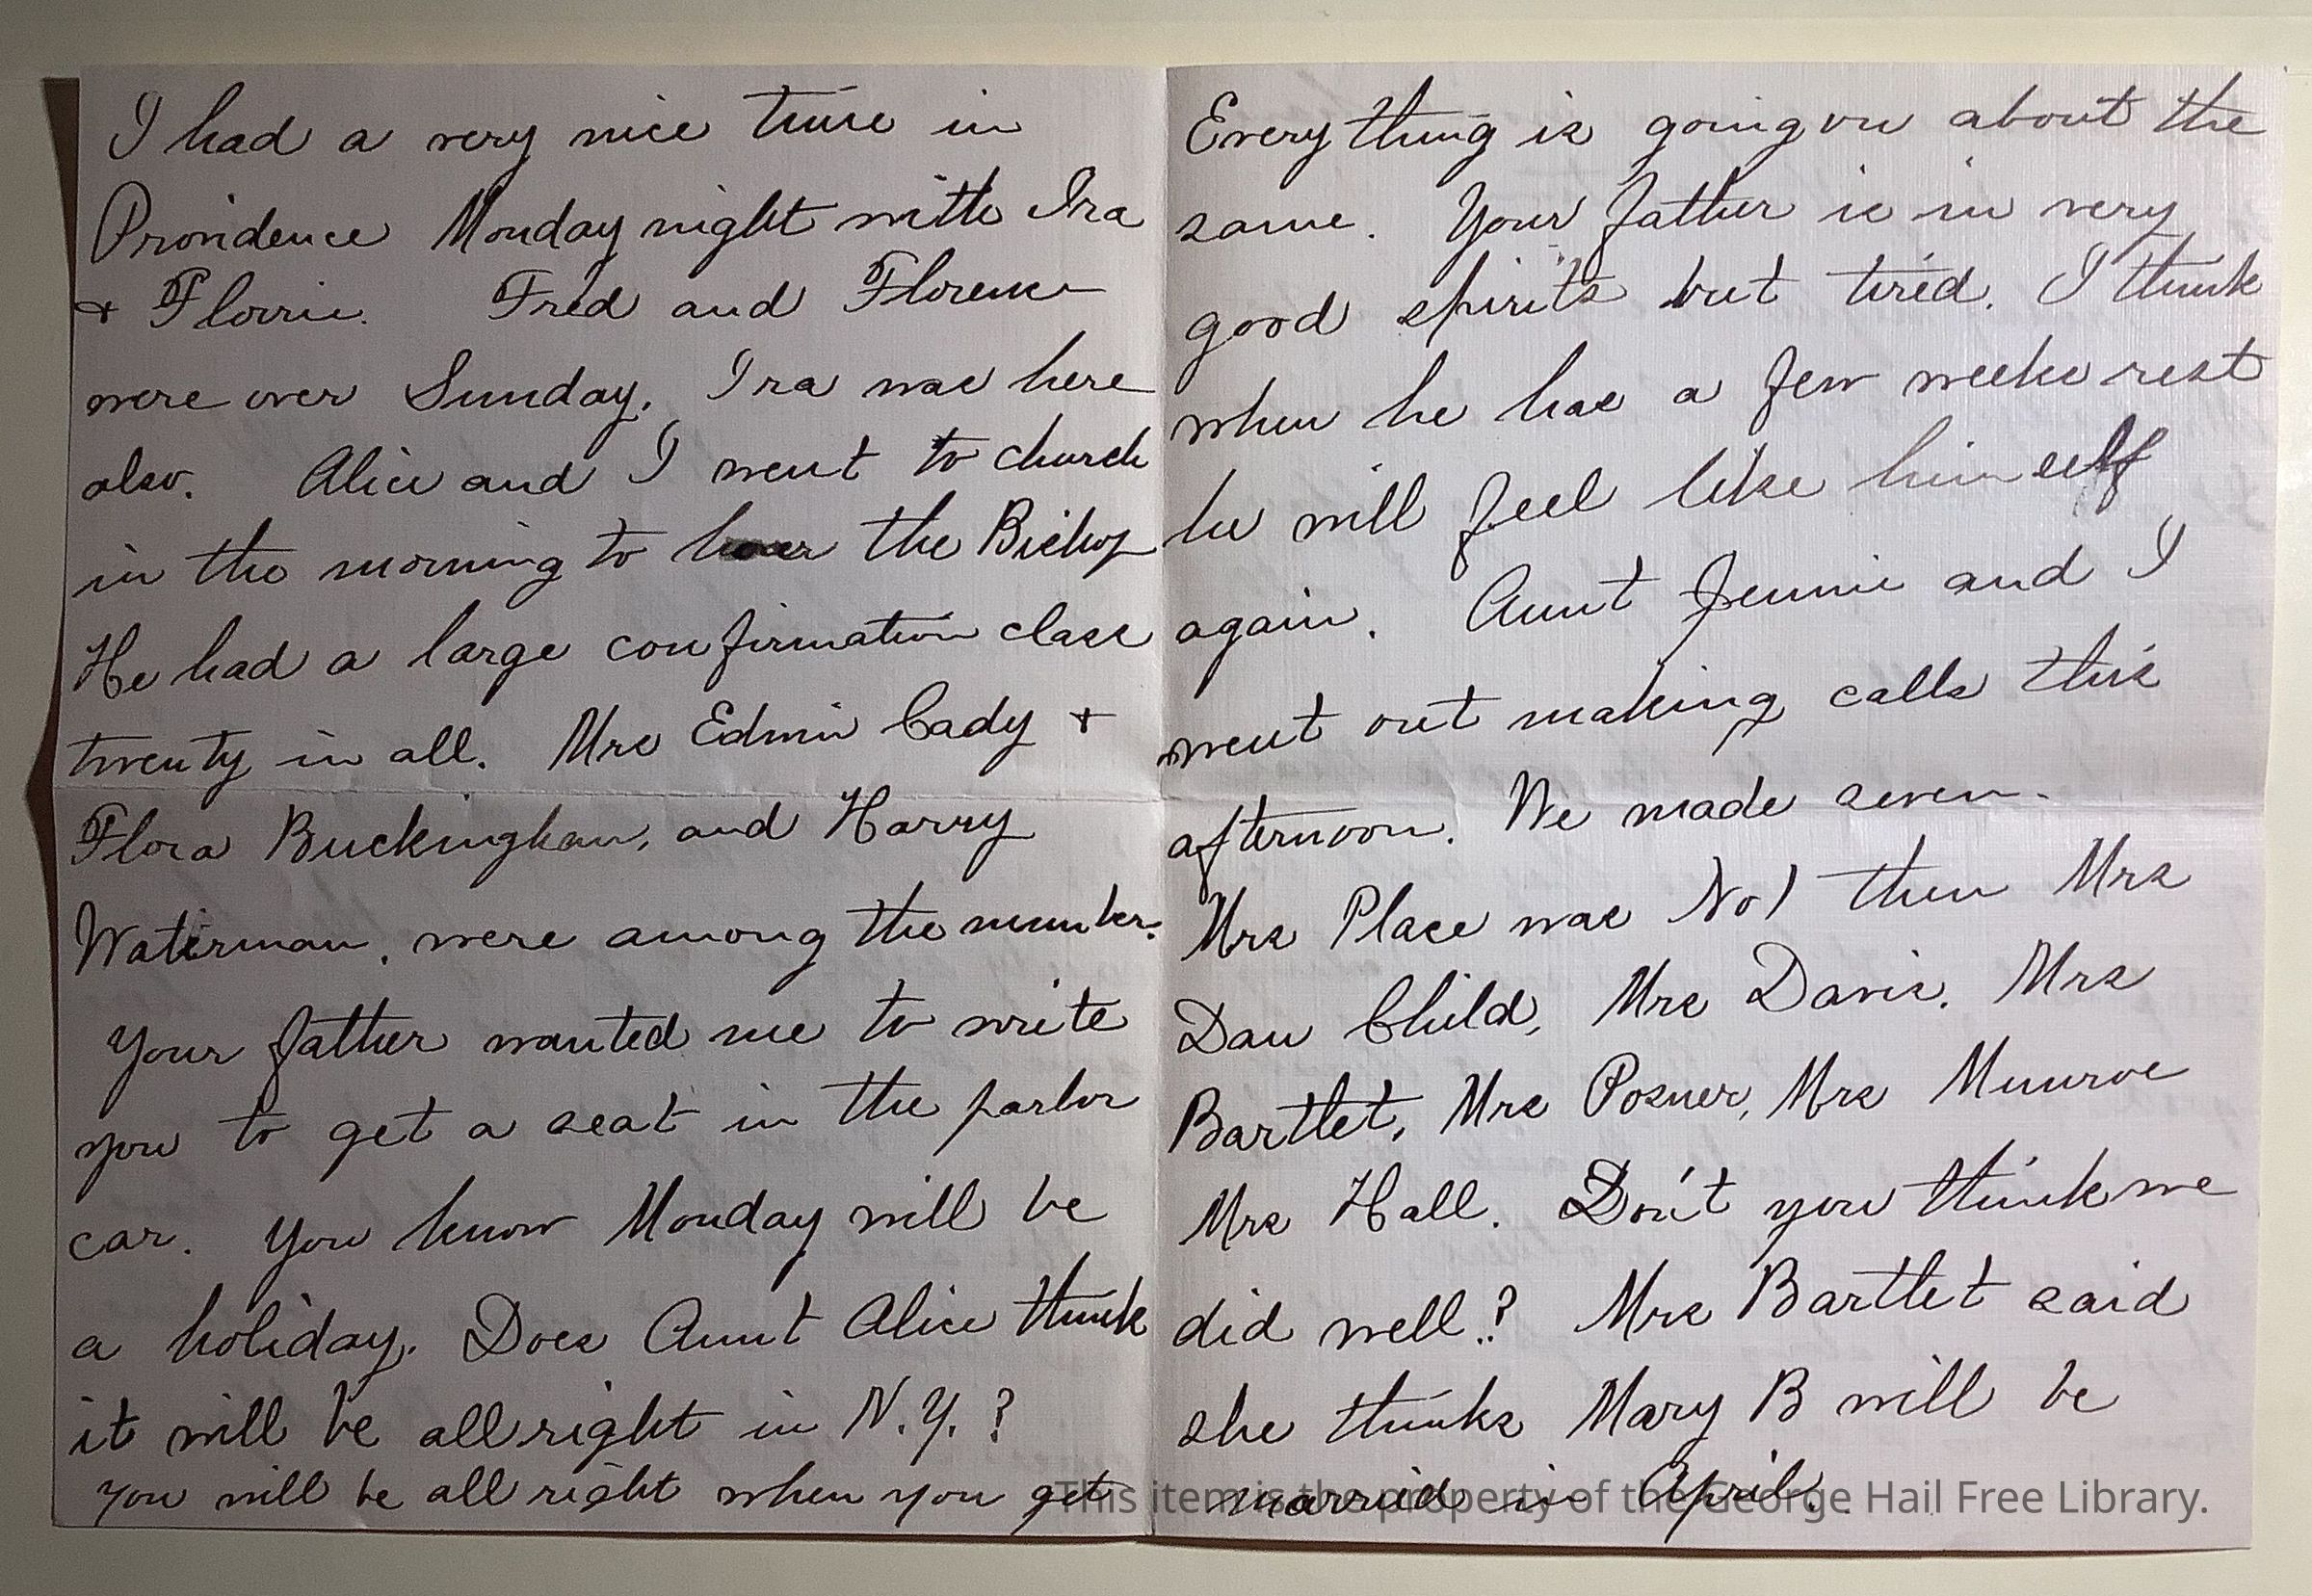 I had a very nice time in
Providence Monday night with Ira
+ Florrie. Fred and Florence
were over Sunday. Ira was here
also. Alice and I went to church
in the morning to hear the Bishop
He had a large confirmation class
twenty in all. Mrs Edwin Cady +
Flora Buckingham, and Harry
Waterman, were among the number.
Your father wanted me to write
you to get a seat in the parlor
car. You know Monday will be
a holiday. Does Aunt Alice think
it will be all right in N.Y.?
you will be all right when you get
Everything is going on about the
same. Your father is in very
good spirits but tired. I think
when he has a few weeks rest
he will feel like himself
again. Aunt Jennie and I
went out making calls this
afternoon. We made seven.
Mrs Place was No 1 then Mrs
Dan Child, Mrs Davis, Mrs
Bartlet, Mrs Posner, Mrs Munroe
Mrs Hall. Don't you think we
did well? Mrs Bartlet said
she thinks Mary B will be
married in April.
This item is the property of the George Hail Free Library.